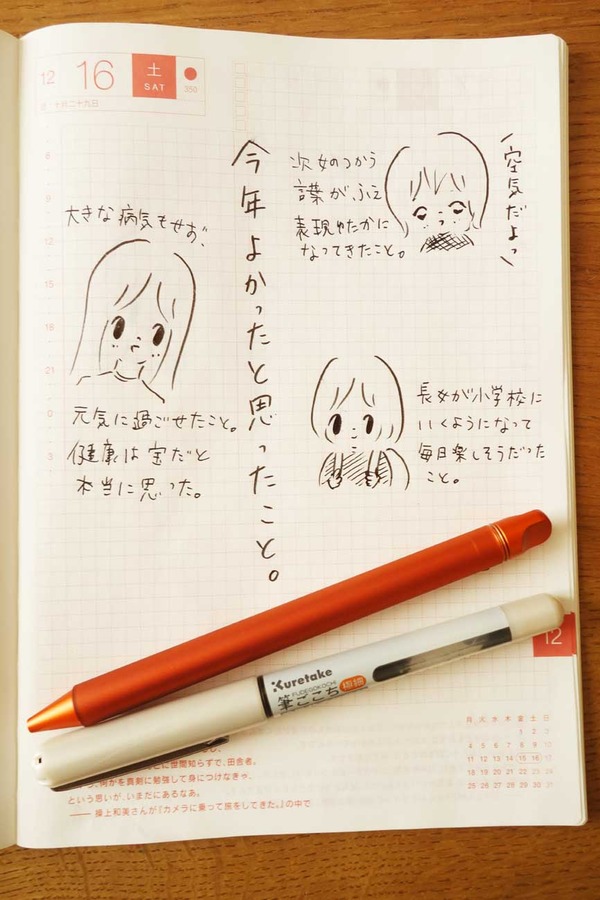 12 16 土
SAT
350
今年よかったと思ったこと。
＼空気だよっ／
次女のつかう
言葉が、ふえ
表現ゆたかに
なってきたこと。
大きな病気もせず、
元気に過ごせたこと。
健康は宝だと
本当に思った。
長女が小学校に
いくようになって
毎日楽しそうだった
こと。
6
9
12
15
18
21
0
3
12
Kuretake
FUDEGOKOCHI
筆ごこち 極細
月 火 水 木 金 土 日
1 2 3
4 5 6 7 8 9 10
11 12 13 14 15 16 17
18 19 20 21 22 23 24
25 26 27 28 29 30 31
に世間知らずで、田舎者。
何かを真剣に勉強して身につけなきゃ、
という思いが、いまだにあるなあ。
—— 操上和美さんが『カメラに乗って旅をしてきた。』の中で